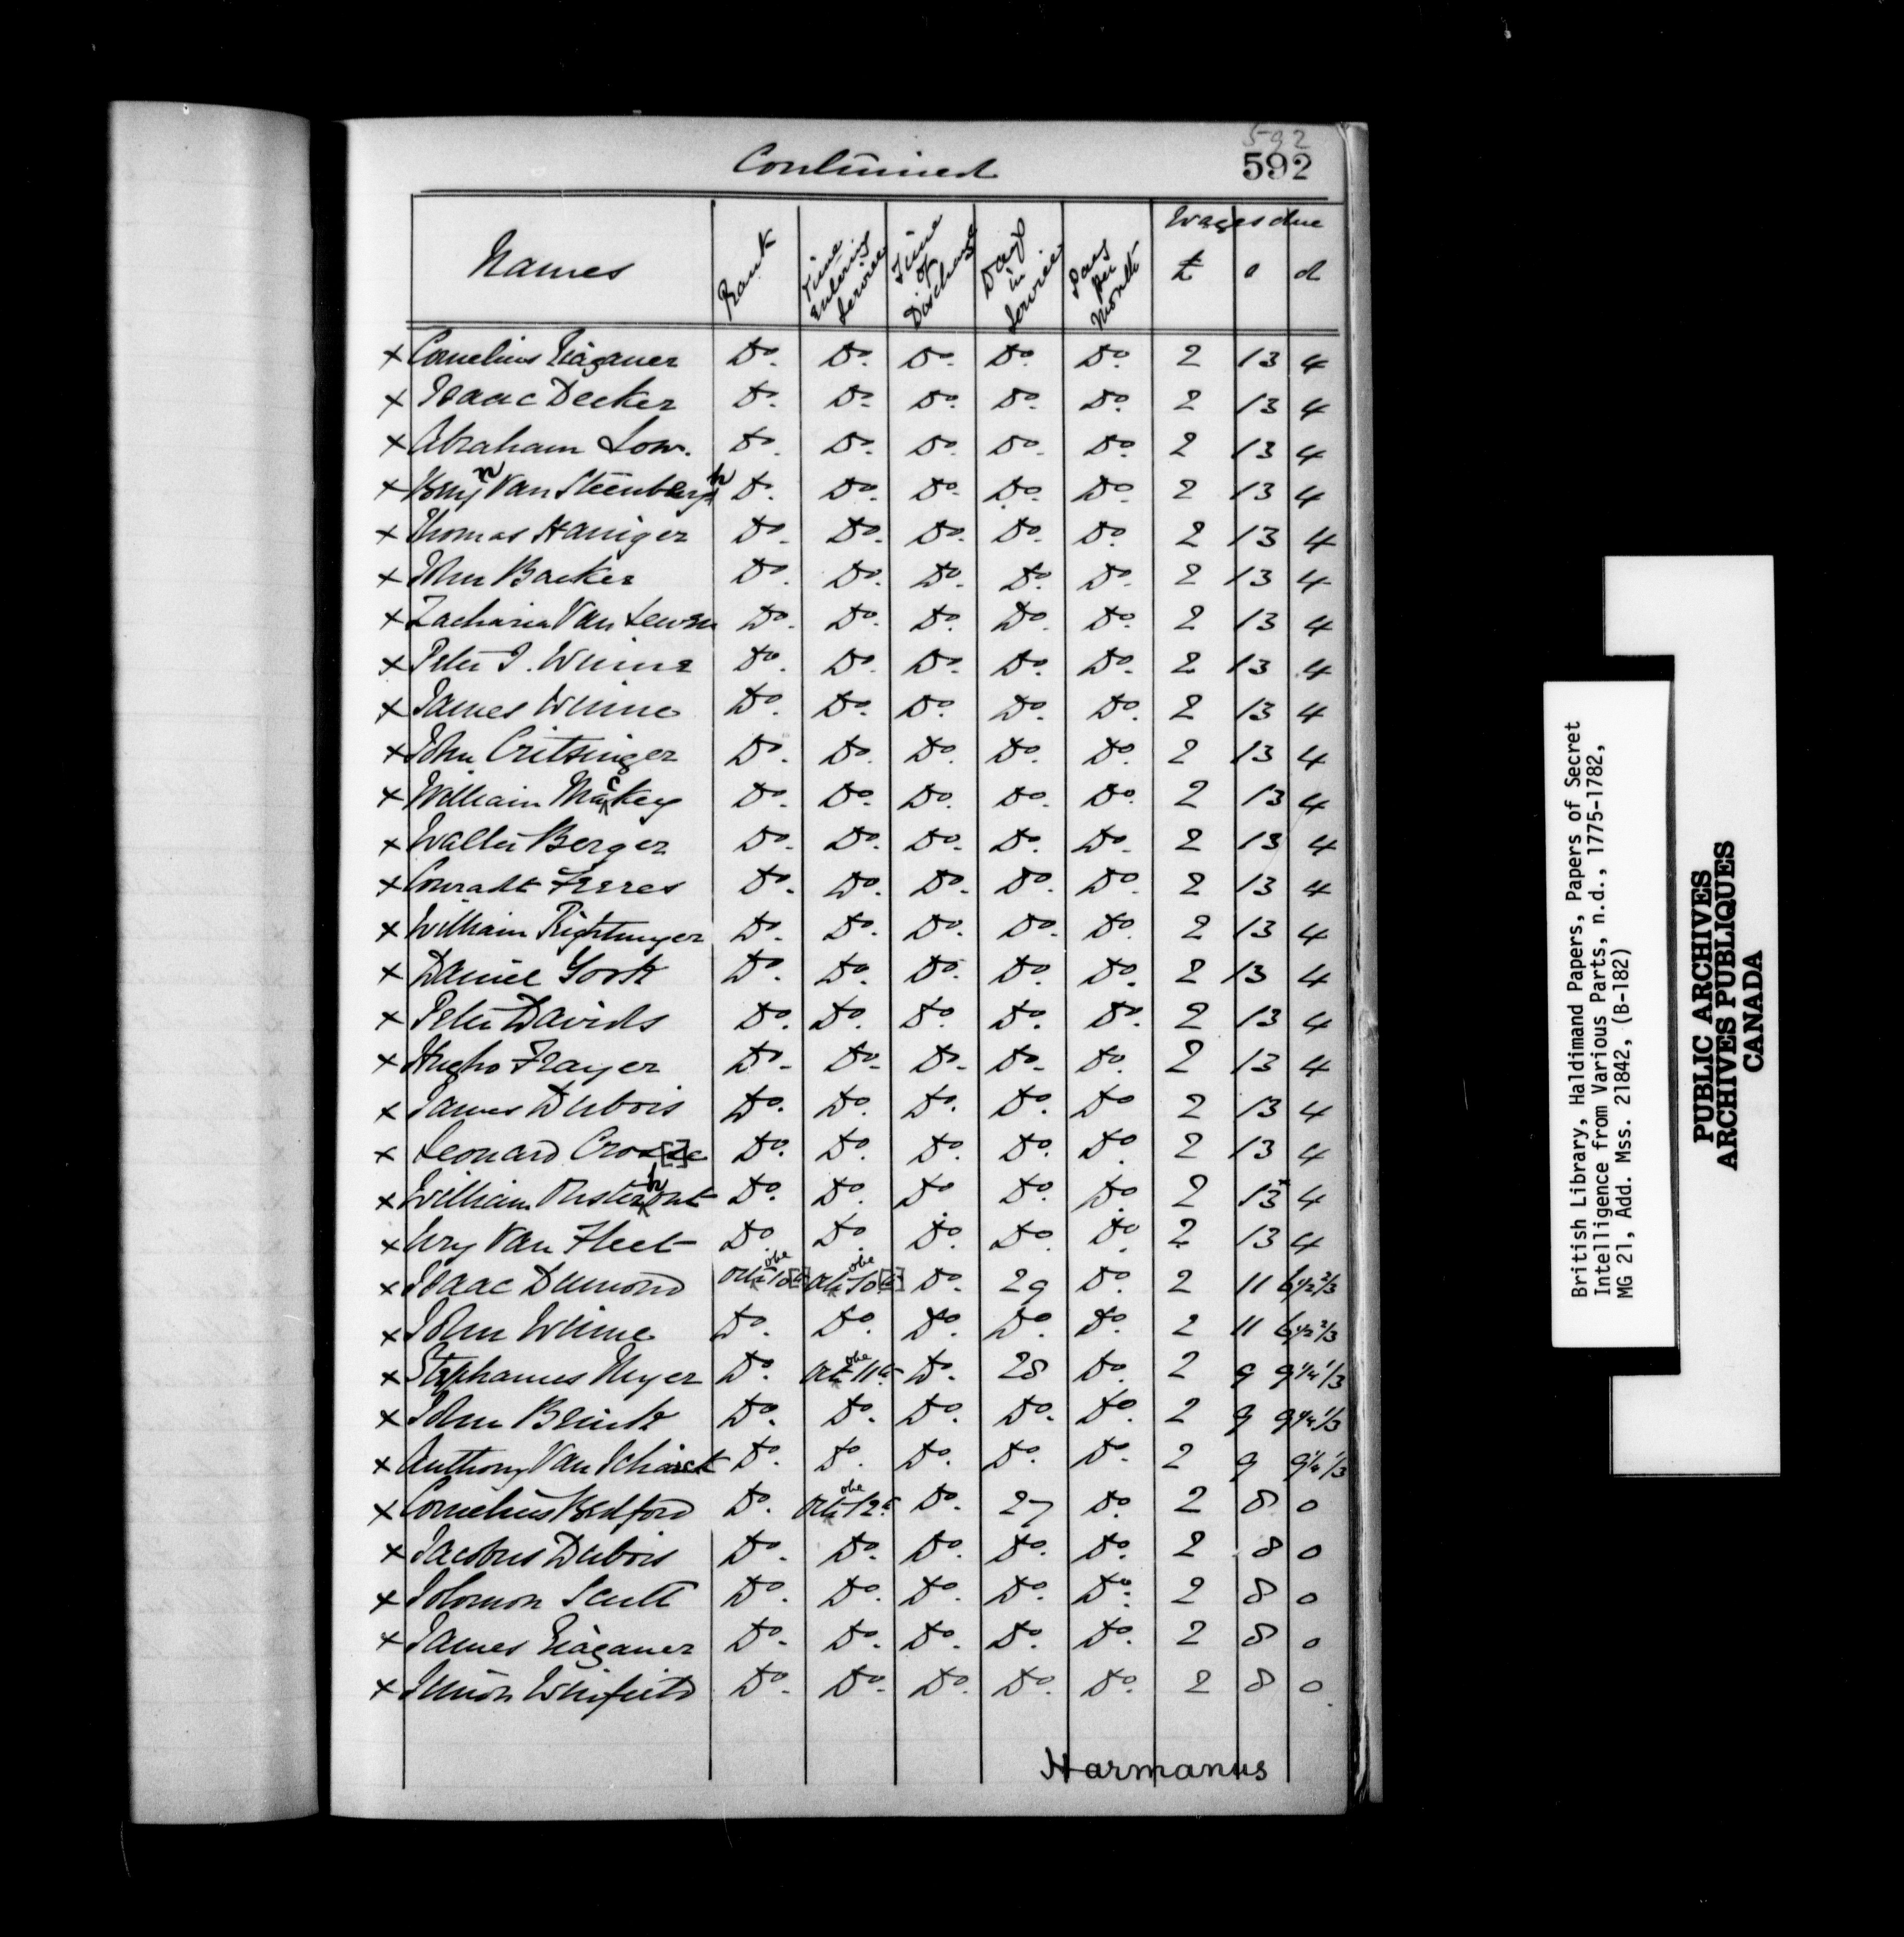 592
Continued 592
Names Rank Time Entering Service Time of Discharge Days in Service Pay per Month Wages due £ s d
x Cornelius Eiaganer Do. Do. Do. Do. Do. 2 13 4
x Isaac Decker Do. Do. Do. Do. Do. 2 13 4
x Abraham Low. Do. Do. Do. Do. Do. 2 13 4
x Benjn Van Steenbergh Do. Do. Do. Do. Do. 2 13 4
x Thomas Haniger Do. Do. Do. Do. Do. 2 13 4
x John Backer Do. Do. Do. Do. Do. 2 13 4
x Zacharia Van Do. Do. Do. Do. Do. 2 13 4
x Peter I. Winne Do. Do. Do. Do. Do. 2 13 4
x James Winne Do. Do. Do. Do. Do. 2 13 4
x John Critsinger Do. Do. Do. Do. Do. 2 13 4
x William Mackey Do. Do. Do. Do. Do. 2 13 4
x Walter Berger Do. Do. Do. Do. Do. 2 13 4
x Conradt Freres Do. Do. Do. Do. Do. 2 13 4
x William Rightmyer Do. Do. Do. Do. Do. 2 13 4
x Daniel York Do. Do. Do. Do. Do. 2 13 4
x Peter Davids Do. Do. Do. Do. Do. 2 13 4
x Hugho Frayer Do. Do. Do. Do. Do. 2 13 4
x James Dubois Do. Do. Do. Do. Do 2 13 4
x Leonard Do. Do. Do. Do. Do. 2 13 4
x William Do. Do. Do Do. Do. 2 13 4
x Ury Van Fleet Do. Do. Do. Do. Do. 2 13 4
x Isaac Dumond Octobe 10[th] Octobe 10[th] Do. 29 Do. 2 11 6 1/2 2/3
x John Winne Do. Do. Do. Do. Do. 2 11 6 1/2 2/3
x Stephanus Myer Do. Octobe 11th Do. 28 Do. 2 9 9 1/4 1/3
x John Brink Do. Do. Do. Do. Do. 2 9 9 1/4 1/3
x Anthony Van Schaick Do. Do. Do. Do. Do. 2 9 9 1/4 1/3
x Cornelius Bedford Do. Octobe 12th Do. 27 Do. 2 8 0
x Jacobus Dubois Do. Do. Do. Do. Do. 2 8 0
x Solomon Scutt Do. Do. Do. Do. Do. 2 8 0
x James Eiaganer Do. Do. Do. Do. Do. 2 8 0
x Simion Whifield Do. Do. Do. Do. Do. 2 8 0
Harmanus
British Library, Haldimand Papers, Papers of Secret
Intelligence from Various Parts, n.d., 1775-1782,
MG 21, Add. Mss. 21842, (B-182)
PUBLIC ARCHIVES
ARCHIVES PUBLIQUES
CANADA